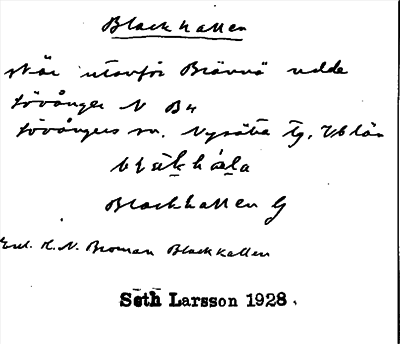 Blackhallen
skär utanför Brännö udde
Lövånger N Bn
Lövångers sn. Nysätra tg, Vb län
Blackhallen G
Enl. K. N. Broman Blackkallen
Seth Larsson 1928.